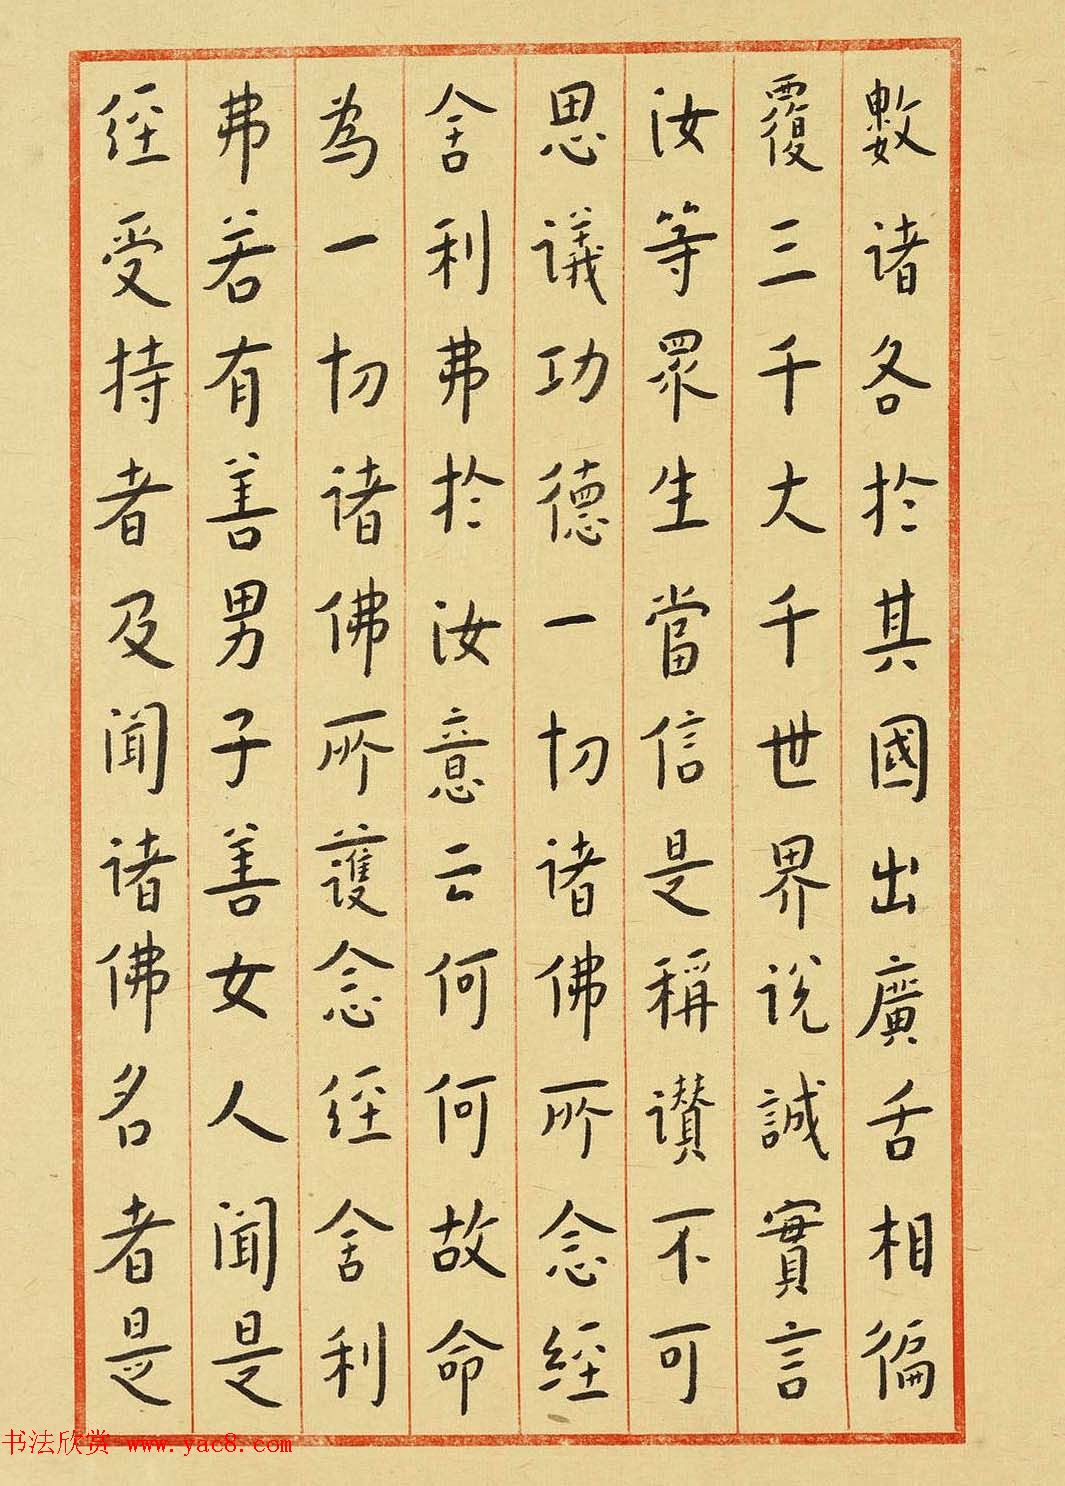 數諸各於其國出廣舌相徧
覆三千大千世界說誠實言
汝等眾生當信是稱讚不可
思議功德一切諸佛所念經
舍利弗於汝意云何何故命
為一切諸佛所護念經舍利
弗若有善男子善女人聞是
經受持者及聞諸佛名者是
书法欣赏 www.yac8.com